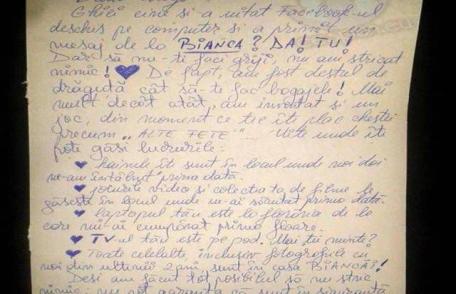 Ghici cine și-a uitat Facebook-ul
deschis pe computer și a primit un
mesaj de la BIANCA? DA! TU!
Dar să nu-ți faci griji, nu am stricat
nimic! ♥ De fapt, am fost destul de
drăguță cât să-ți fac bagajele! Mai
mult decât atât, am inventat și un
joc, din moment ce ție îți plac chestii
precum „ALTE FETE". Uite unde îți
poți găsi lucrurile:
♥ hainele îți sunt în locul unde noi doi
ne-am întâlnit prima dată.
♥ jocurile video și colecția ta de filme le
găsești în locul unde m-ai sărutat prima dată.
♥ laptopul tău este la florăria de la
care mi-ai cumpărat prima floare.
♥ TV-ul tău este pe pod. Mai ții minte?
♥ Toate celelalte, inclusiv fotografiile cu
noi din ultimii 2 ani sunt în casa BIANCĂI!
Deși am făcut tot posibilul să nu stric
nimic, nu pot garanta că sunt în siguranță